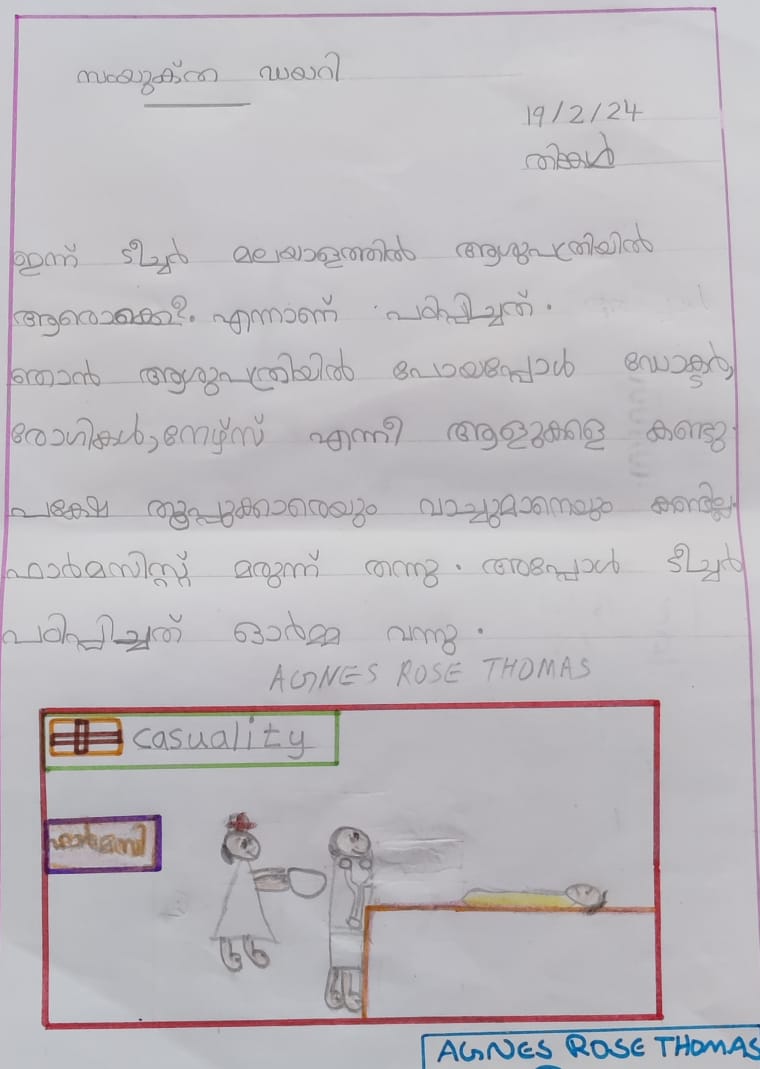 സംയുക്ത ഡയറി
19/2/24
തിങ്കൾ
ഇന്ന് ടീച്ചർ മലയാളത്തിൽ ആശുപത്രിയിൽ
ആരൊക്കെ?. എന്നാണ് പഠിപ്പിച്ചത്.
ഞാൻ ആശുപത്രിയിൽ പോയപ്പോൾ ഡോക്ടർ,
രോഗികൾ,നേഴ്സ് എന്നീ ആളുകളെ കണ്ടു.
പക്ഷേ തൂപ്പുകാരെയും വാച്ചുമാനെയും കണ്ടില്ല.
ഫാർമസിസ്റ്റ് മരുന്ന് തന്നു. അപ്പോൾ ടീച്ചർ
പഠിപ്പിച്ചത് ഓർമ്മ വന്നു.
AGNES ROSE THOMAS
casuality
ഫാർമസി
AGNES ROSE THOMAS